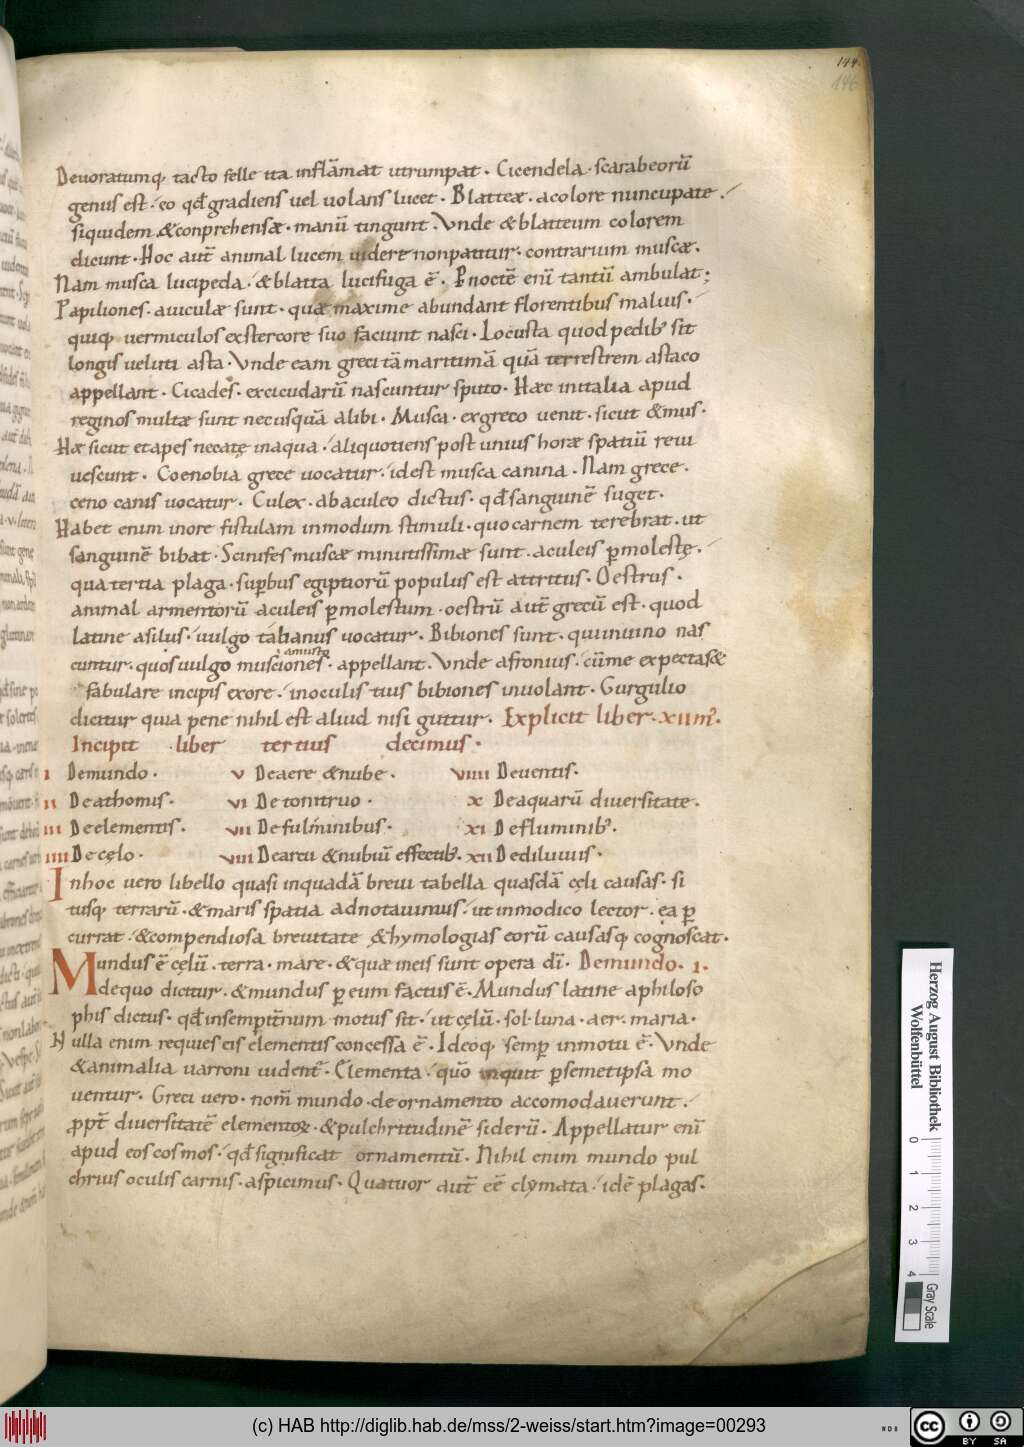 144.
146
Deuoratumq, tacto felle ita inflāmat utrumpat. Cicendela. scarabeorū
genus est. eo qđ gradiens uel uolans lucet. Blatteæ. acolore nuncupate.
siquidem &conprehensæ. manū tingunt. Vnde &blatteum colorem
dicunt. Hoc aut̄ animal lucem uidere nonpatitur. contrarium muscæ.
Nam musca lucipeda. &blatta lucifuga ē. P noctē enī tantū ambulat;
Papiliones. auiculæ sunt. quæ maxime abundant florentibus maluis.
quiq, uermiculos exstercore suo faciunt nasci. Locusta quod pedib' sit
longis ueluti asta. Vnde eam greci tā maritimā quā terrestrem astaco
appellant. Cicades. excicudarū nascuntur sputo. Hæc initalia apud
reginos multæ sunt necusquā alibi. Musca. exgreco uenit. sicut &mus.
Hæ sicut etapes necatę inaqua. aliquotiens post unius horæ spatiū reui
uescunt. Coenobia grece uocatur. idest musca canina. Nam grece.
ceno canis uocatur. Culex. abaculeo dictus. qđ sanguinē suget.
Habet enim inore fistulam inmodum stimuli. quo carnem terebrat. ut
sanguinē bibat. Scinifes muscæ minutissimæ sunt. aculeis p̱molestę.
qua tertia plaga. sup̱bus egiptiorū populus est attritus. Oestrus.
animal armentorū aculeis p̱molestum. oestrū aut̄ grecū est. quod
latine asilus. uulgo tabanus uocatur. Bibiones sunt. quiinuino nas
amusto
cuntur. quos uulgo musciones. appellant. Vnde afronius. cūme expectas&
fabulare incipis exore. inoculis tuis bibiones inuolant. Gurgulio
dicitur quia pene nihil est aliud nisi guttur. Explicit liber. xiim'.
Incipit liber tertius decimus.
i Demundo. v Deaere &nube. viiii Deuentis.
ii Deathomis. vi Detonitruo. x Deaquarū diuersitate.
iii Deelementis. vii Defulminibus. xi Defluminib'.
iiii Decęlo. viii Dearcu &nubiū effectib'. xii Dediluuiis.
Inhoc uero libello quasi inquadā breui tabella quasdā cęli causas. si
tusq, terrarū. &maris spatia adnotauimus. ut inmodico lector. ea p̱
currat. &compendiosa breuitate &hymologias eorū causasq, cognoscat.
Mundus ē cęlū. terra. mare. &quæ ineis sunt opera dī. Demundo. i.
dequo dicitur. &mundus p̱ eum factus ē. Mundus latine aphiloso
phis dictus. qđ insempit̄num motus sit. ut cęlū. sol. luna. aer. maria.
Nulla enim requies eis elementis concessa ē. Ideoq, semp̱ inmotu ē. Vnde
&animalia uarroni uident̄. Elementa. quō inquit p̱semetipsa mo
uentur. Greci uero. nom̄ mundo. de ornamento accomodauerunt.
p̱pt̄ diuersitatē elementoꝝ. &pulchritudinē siderū. Appellatur enī
apud eos cosmos. qđ significat ornamentū. Nihil enim mundo pul
chrius oculis carnis. aspicimus. Quatuor aut̄ eē clymata. idē plagas.
Herzog August Bibliothek
Wolfenbüttel
0 1 2 3 4
Gray Scale
(c) HAB http://diglib.hab.de/mss/2-weiss/start.htm?image=00293
cc BY SA